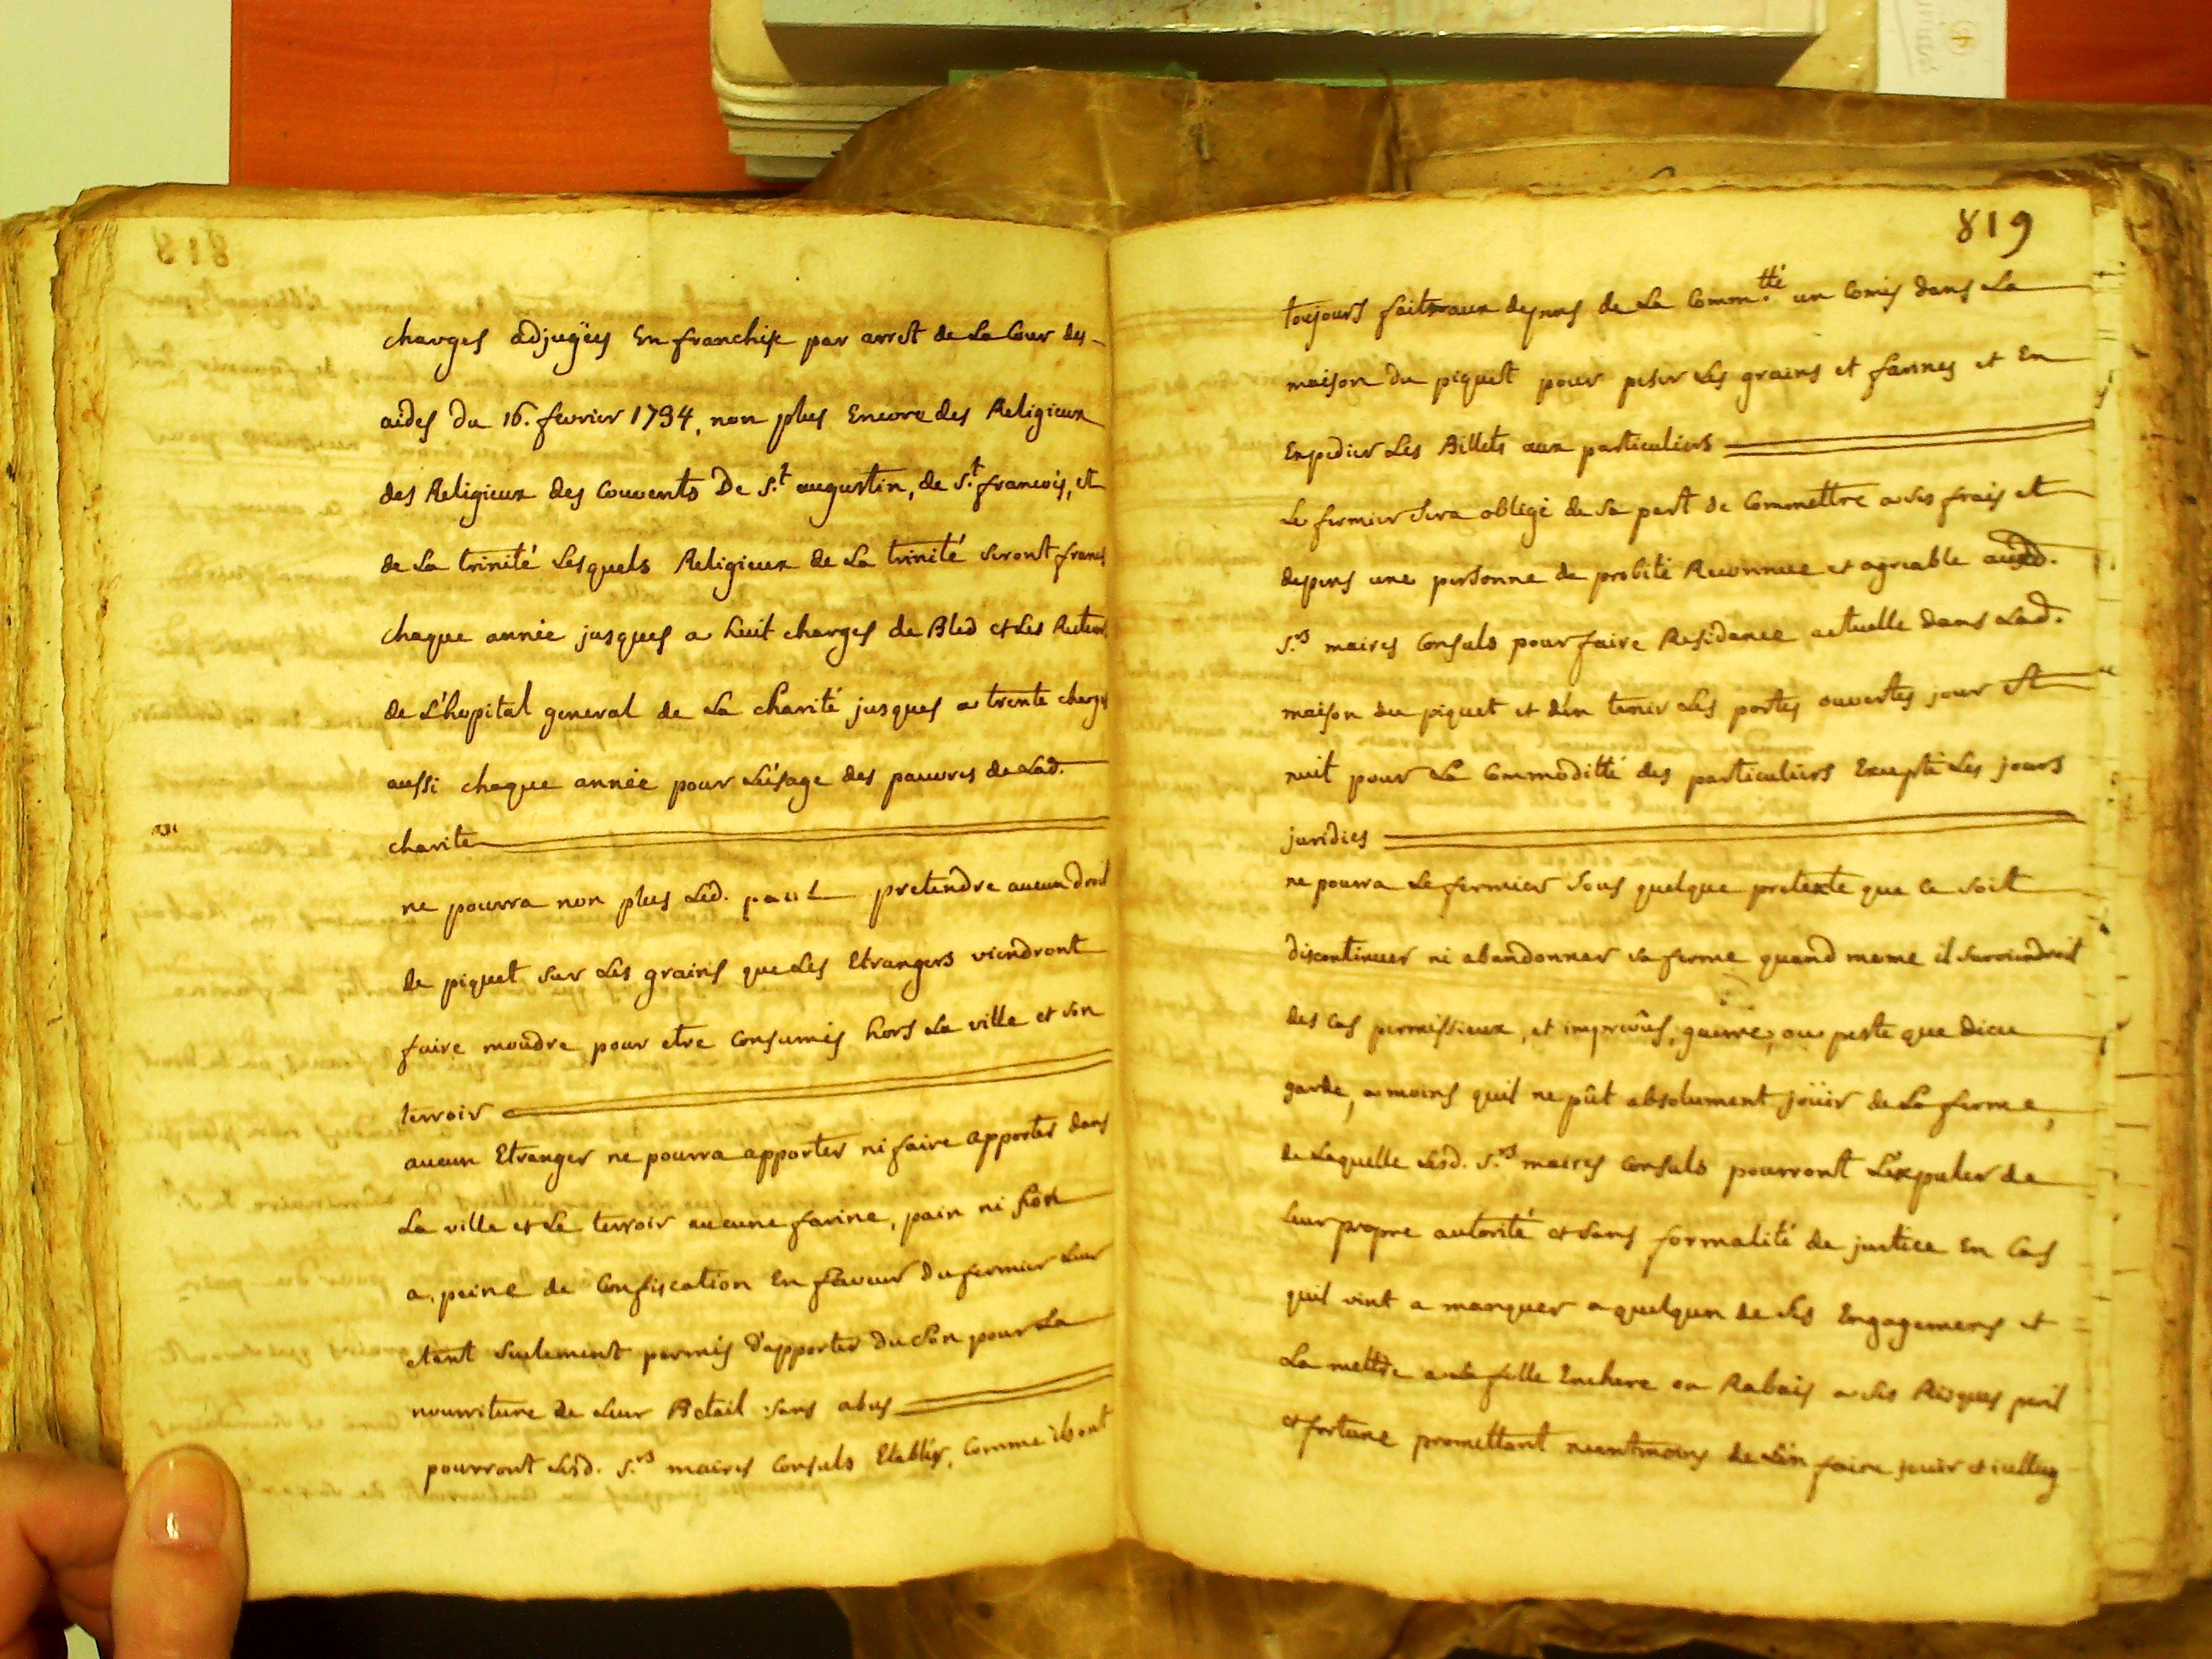 charges adjugées En franchise par arrest de La Cour des
aides du 16. fevrier 1734, non plus Encore des Religieux
des Religieux des Couvents De S.t augustin, de S.t francois, et
de La trinité Lesquels Religieux de La trinité seront francs
chaque année jusques a huit charges de Bled et Les Recteurs
de L'hopital general de La Charité jusques a trente charges
aussi chaque année pour L'usage des pauvres de Lad.
charite
ne pourra non plus Led. paul pretendre aucun droit
de piquet sur Les grains que Les Etrangers viendront
faire moudre pour etre Consumés hors La ville et son
terroir
aucun Etranger ne pourra apporter ni faire apporter dans
La ville et Le terroir aucune farine, pain ni son
a peine de Confiscation En faveur du fermier Leur
etant seulement permis d'apporter du son pour La
nourriture de Leur Betail sans abus
pourront Lesd. S.rs maires Consuls Etablir, Comme ils ont
819
toujours fait aux depens de La Comm.tté un Comis dans La
maison du piquet pour peser Les grains et farines et En
Expedier Les Billets aux particuliers
Le fermier sera obligé de sa part de Commettre a ses frais et
depens une personne de probité Reconnue et agreable auxd.
S.rs maires Consuls pour faire Residance actuelle dans Lad.
maison du piquet et d'en tenir Les portes ouvertes jour et
nuit pour La Commoditté des particuliers Excepté Les jours
juridics
ne pourra Le fermier sous quelque pretexte que ce soit
discontinuer ni abandonner sa ferme quand meme il surviendroit
des Cas pernissieux, et imprevûs, guerre, ou peste que dieu
garde, a moins quil ne pût absolument joüir de La ferme,
de Laquelle Lesd. S.rs maires Consuls pourront L'expulser de
Leur propre autorité et sans formalité de justice En Cas
quil vint a manquer a quelqun de ses Engagemens et
La mettre a La folle Enchere ou Rabais a ses Risques peril
et fortune promettant neantmoins de L'en faire jouir et